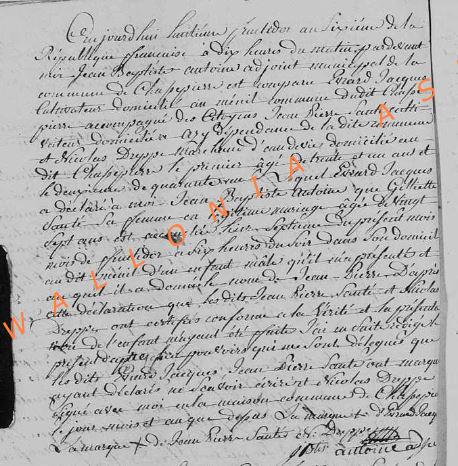 Ce jourd'hui huitième fructidor an sixième de la
République française à dix heures du matin pardevant
moi Jean Baptiste antoine adjoint municipal de la
commune de Chassepierre est comparu Evrard Jacques
Cultivateur domicilié au ménil commune dudit Chasse
pierre accompagné des Citoyens Jean Pierre Santé culti-
vateur domicilié a dépendance de la dite commune
et Nicolas Dreppe Marchand d'eau de vie domicilié en
dit Chassepierre le premier âgé de trente et un ans et
le deuxième de quarante lequel Evrard Jacques
a déclaré a moi Jean Baptiste antoine que
Santé sa femme en légitime mariage âgée de vingt
sept ans est accouchée hier Septième du présent mois
mois de fructidor a Six heures du soir dans son domicil
audit ménil d'un enfant mâle qu'il m'a présenté et
auquel il a donné le nom de Jean Pierre Daprès
cette déclaration que les dits Jean Pierre Santé et Nicolas
Dreppe ont certifiés conforme a la Vérité et la présente
de l'enfant m'ayant été faite J'ai en fait rédigé le
présent dapres les pouvoirs qui me sont délégués que
les dits Evrard Jacques Jean Pierre Santé ont marqué
ayant déclarés ne savoir écrire et Nicolas Dreppe
Signé avec moi en la maison commune de Chassepierre
le jour mois et an que dessus La marque d'Evrard Jacq
La marque X de Jean Pierre Santé N. Dreppe
antoine adj
WALLONIA AS